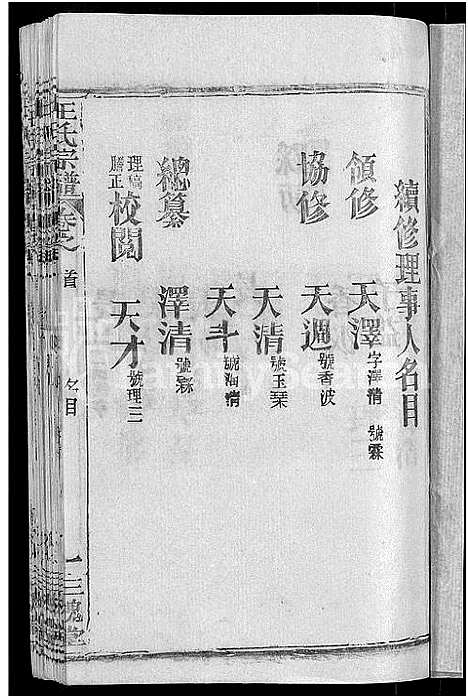 續修理事人名目
領修 天澤 字澤清 號霖
協修 天過 號香波
天清 號玉琹
天斗 號海清
總纂 澤清 號霖
理稿 謄正 校閱 天才 號理三
王氏宗譜 卷之首 名目 一 三槐堂